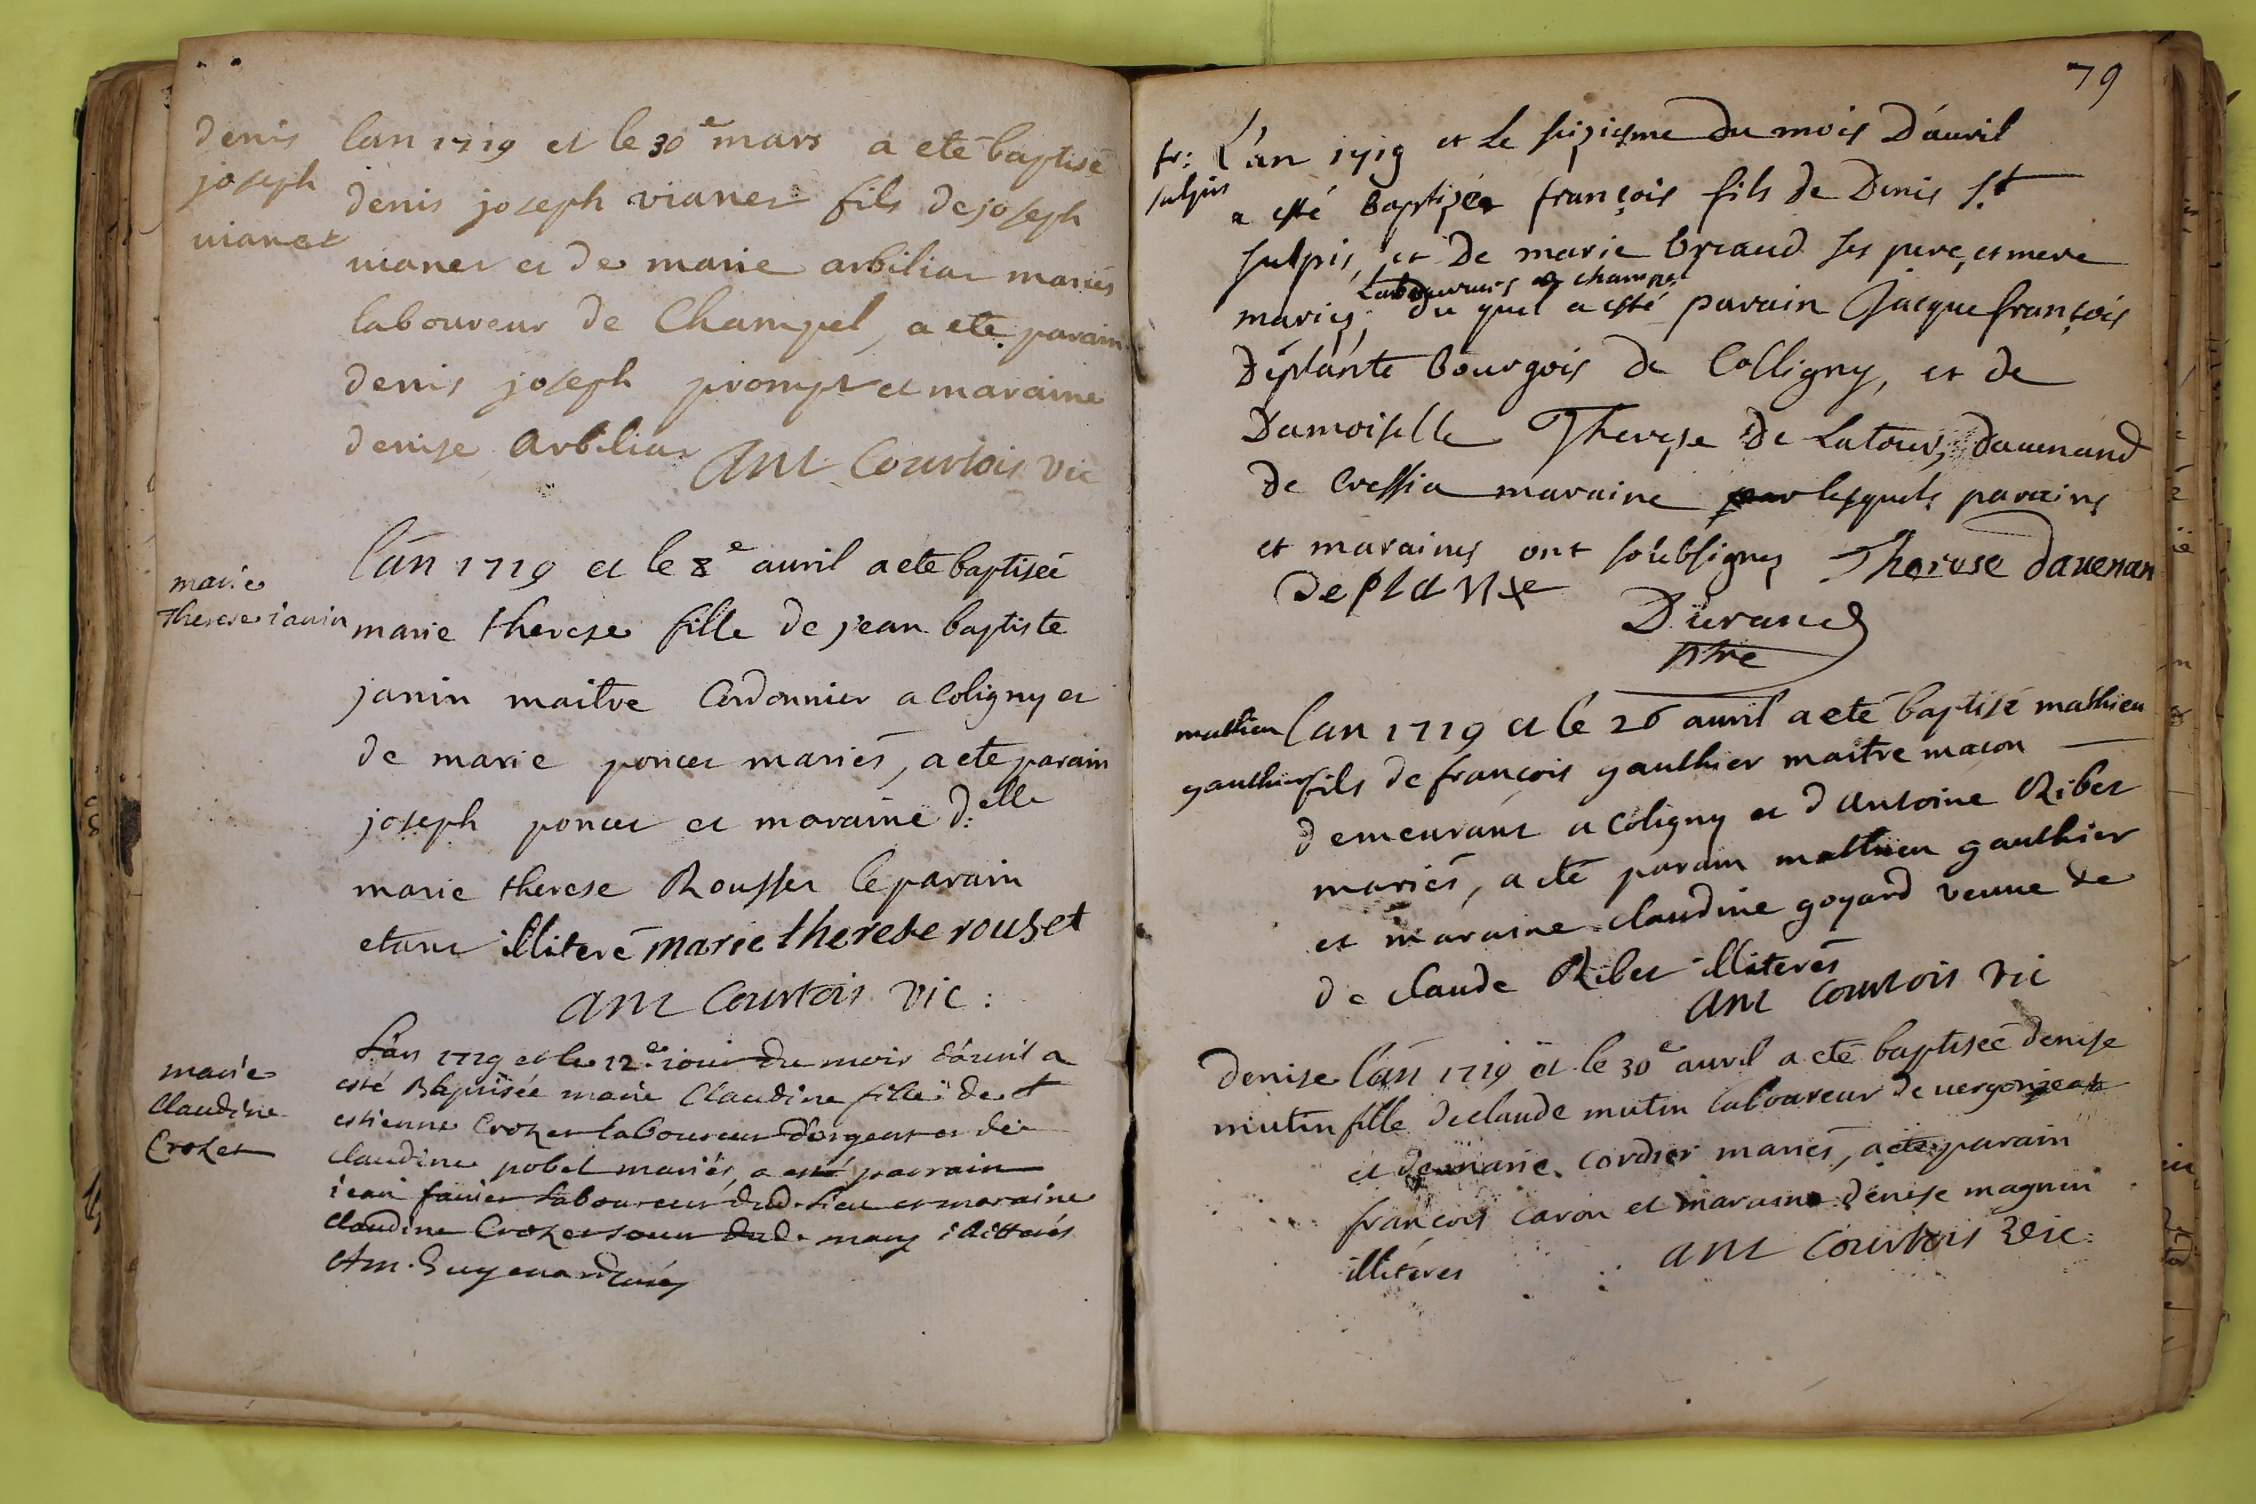 denis
joseph
vianet
lan 1719 et le 30e mars a eté baptisé
denis joseph vianet fils de joseph
vianet et de marie arbiliat mariés
laboureur de Champel, a eté parain
denis joseph prompt et maraine
denise arbiliat
Ant Courtois vic
marie
therese ianin
l'an 1719 et le 8e avril a eté baptiseé
marie therese fille de jean baptiste
janin maitre Cordonnier a coligny et
de marie poncet mariés, a eté parain
joseph poncet et maraine d:elle
marie therese Rousset le parain
etant illiteré marie therese rouset
ant Courtois vic:
marie
Claudine
Crozet
L'an 1719 et le 12e iour du mois d'avril a
esté Baptisée marie Claudine fille de
estienne Crozet laboureur d'orgent et de
claudine pobel mariés, a esté parrain
iean favier laboureur dud. lieu et maraine
Claudine Crozet
79
fr:
sulpis
L'an 1719 et le sizieme du mois D'avril
a esté Baptizéz françois fils de Denis St
sulpis, et De marie briaud ses pere, et mere
Laboureurs de champel
mariez, du quel a esté parain Jacque françois
Deplante Bourgois de Colligny, et de
Damoiselle Thereze De Latour, davenand
de Cressia maraine par lesquels parains
et maraines ont soubsignez Therese davenan
De plante
Durand
ptre
mathieu
gauthier
l'an 1719 et le 26 avril a eté baptisé mathieu
fils de françois gauthier maitre macon
demeurant a coligny et d'antoine Ribet
mariés, a eté parain mathieu gauthier
et maraine claudine goyard veuve de
de claude Ribet illiterés
ant Courtois vic
denise
mutin
l'an 1719 et le 30e avril a eté baptiseé denise
fille de claude mutin laboureur de vergongeat
et de marie cordier mariés, a eté parain
françois caron et maraine denise magnin
illiterés
ant Courtois Vic: